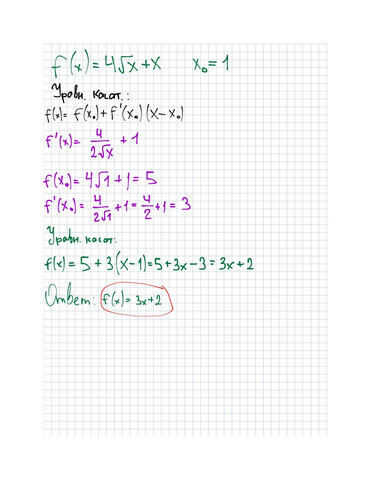 f(x) = 4√x + x   x₀ = 1
Уравн. касат.:
f(x) = f(x₀) + f'(x₀)(x - x₀)
f'(x) = 4/(2√x) + 1
f(x₀) = 4√1 + 1 = 5
f'(x₀) = 4/(2√1) + 1 = 4/2 + 1 = 3
Уравн. касат:
f(x) = 5 + 3(x-1) = 5 + 3x - 3 = 3x + 2
Ответ: f(x) = 3x + 2